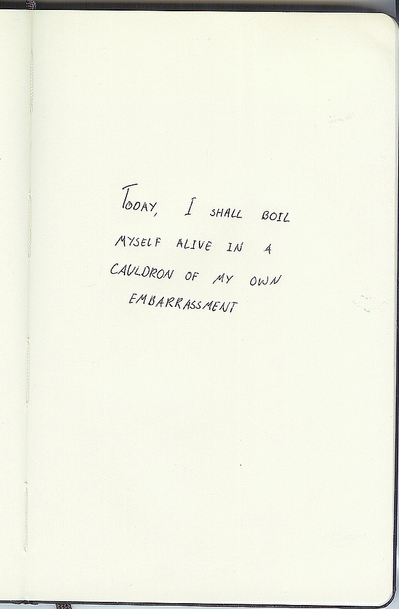 Today, I SHALL BOIL
MYSELF ALIVE IN A
CAULDRON OF MY OWN
EMBARRASSMENT